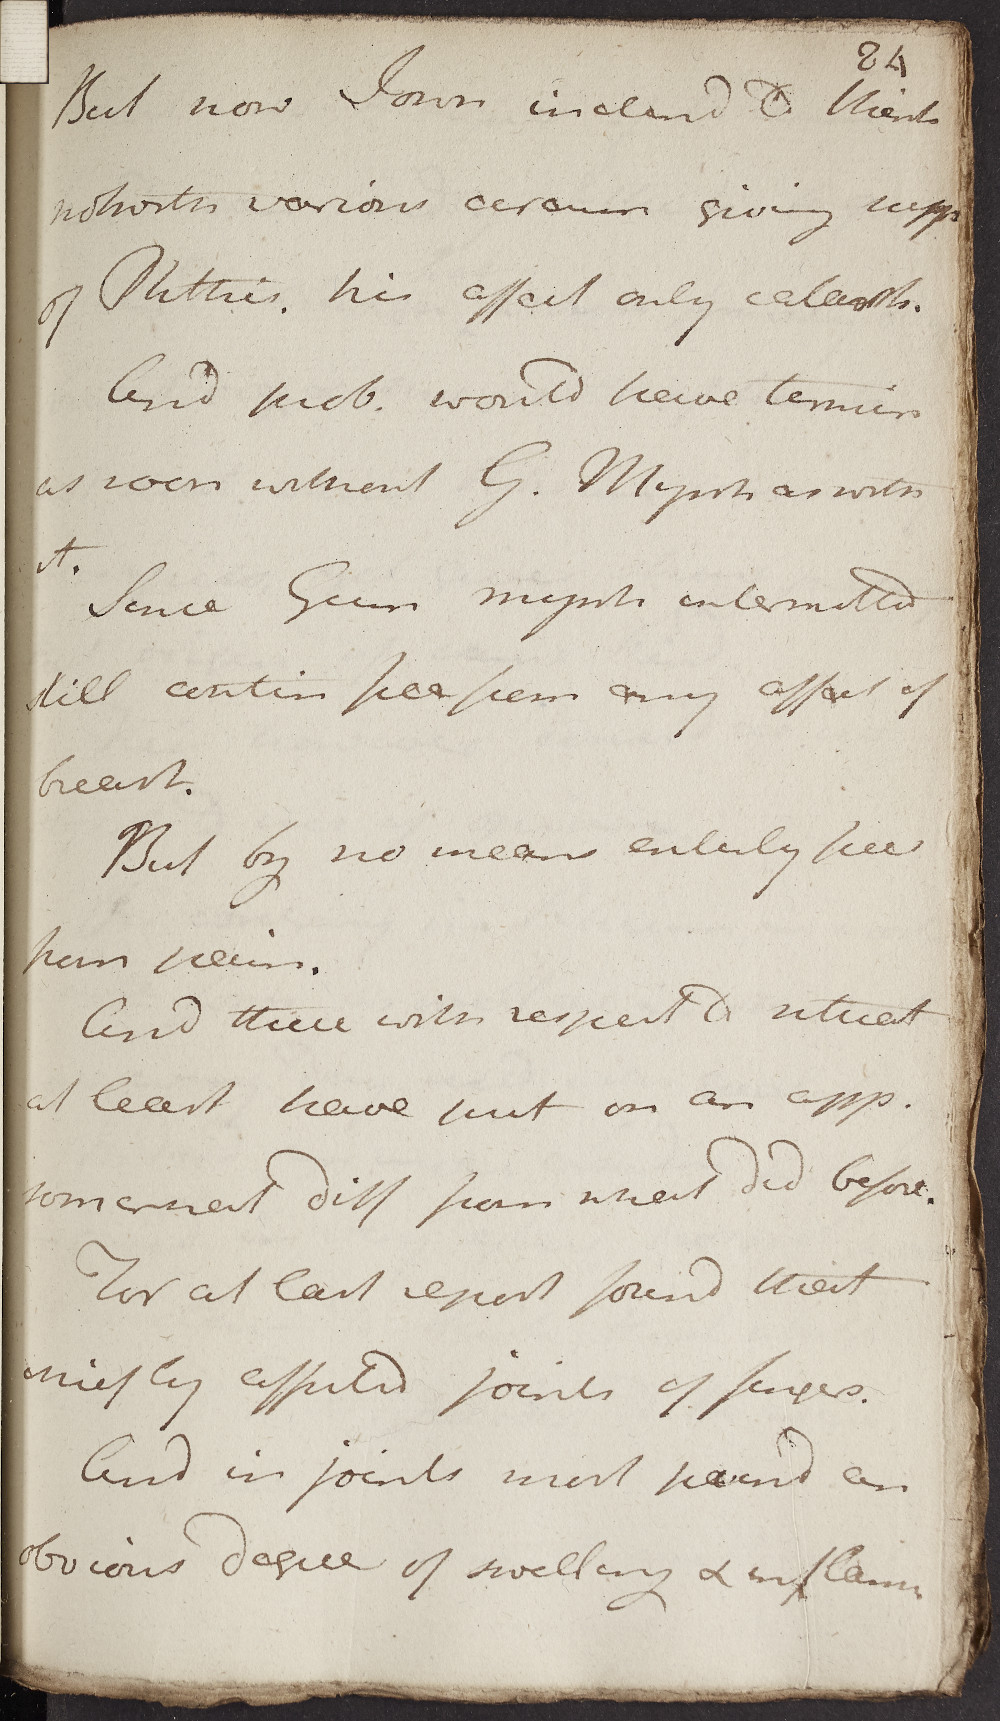 84
But now I own inclend to think
notwith various circum giving supp
of Phthis. his affect only catarrh.
And prob. would have termin
as soon without G. Myrrh as with
it.
Since Gum myrrh intermitted
still contin free from any affect of
breast.
But by no means entirely free
from pain.
And these with respect to situat
at least have put on an app.
somewhat diff from what did before.
For at last report found that
chiefly affected joints of fingers.
And in joints most pained an
obvious degree of swelling & inflamm